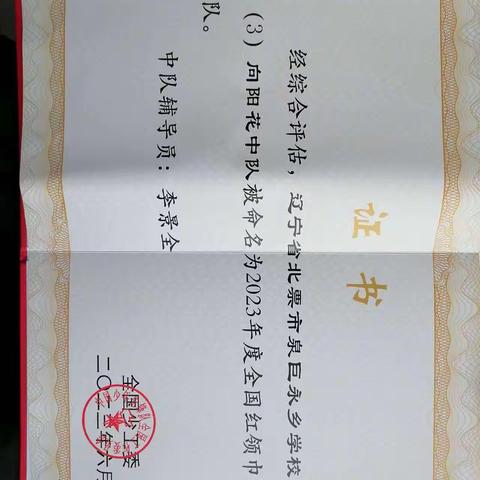 证书
经综合评估，辽宁省北票市泉巨永乡学校
(3) 向阳花中队被命名为2023年度全国红领巾
队。
中队辅导员：李景全
全国少工委
二〇二三年六月